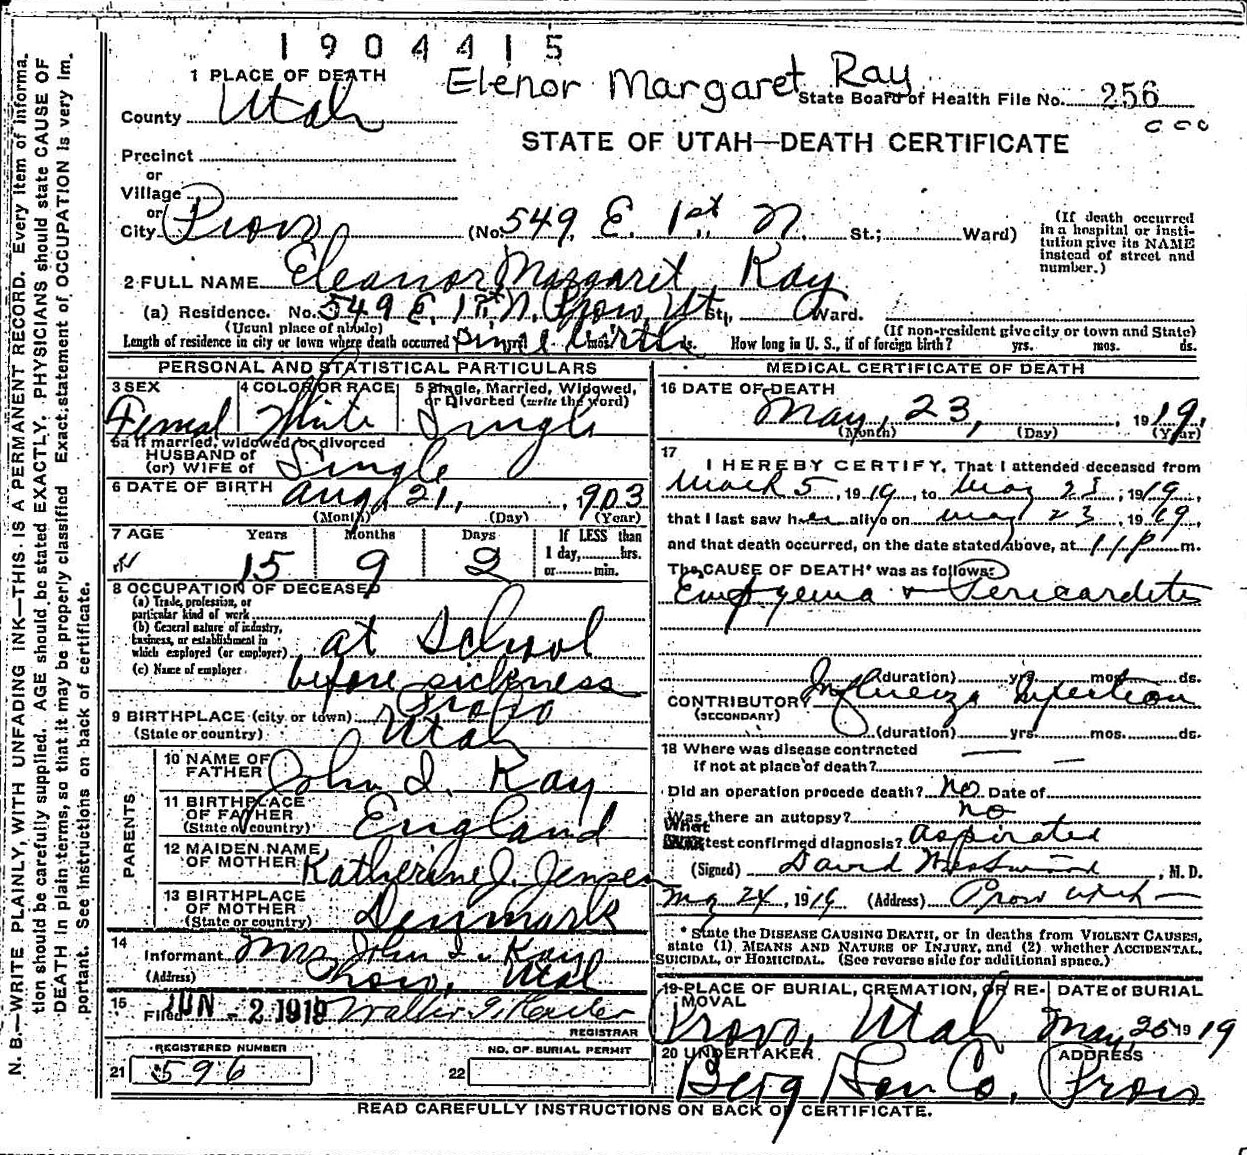 1904415
Elenor Margaret Ray
1 PLACE OF DEATH
State Board of Health File No. 256
County Utah
STATE OF UTAH—DEATH CERTIFICATE
Precinct
or
Village
or
City Provo (No. 549 E. 1st N. St.; Ward)
(If death occurred in a hospital or insti-
tution give its NAME
instead of street and
number.)
2 FULL NAME Eleanor Margaret Ray
(a) Residence. No. 549 E. 1st N. Provo Ut St., Ward.
(Usual place of abode) (If non-resident give city or town and State)
Length of residence in city or town where death occurred since birth mos. ds. How long in U. S., if of foreign birth? yrs. mos. ds.
PERSONAL AND STATISTICAL PARTICULARS
3 SEX 4 COLOR OR RACE 5 Single, Married, Widowed,
or Divorced (write the word)
Femal White Single
5a If married, widowed, or divorced
HUSBAND of
(or) WIFE of Single
6 DATE OF BIRTH Aug. 21, 1903
(Month) (Day) (Year)
7 AGE Years Months Days If LESS than
1 day, hrs.
or min.
15 9 2
8 OCCUPATION OF DECEASED
(a) Trade, profession, or
particular kind of work
(b) General nature of industry,
business, or establishment in
which employed (or employer) at School
(c) Name of employer before sickness
9 BIRTHPLACE (city or town) Provo
(State or country) Utah
PARENTS
10 NAME OF
FATHER John I. Ray
11 BIRTHPLACE
OF FATHER
(State or country) England
12 MAIDEN NAME
OF MOTHER Katherine J. Jensen
13 BIRTHPLACE
OF MOTHER
(State or country) Denmark
14
Informant Mrs John I. Ray
(Address) Provo, Utah
15
Filed JUN - 2 1919
REGISTRAR
REGISTERED NUMBER NO. OF BURIAL PERMIT
21 596 22
MEDICAL CERTIFICATE OF DEATH
16 DATE OF DEATH
May, 23, 1919,
(Month) (Day) (Year)
17
I HEREBY CERTIFY, That I attended deceased from
March 5, 1919, to May 23, 1919,
that I last saw her alive on May 23, 1919,
and that death occurred, on the date stated above, at 11 p m.
The CAUSE OF DEATH* was as follows:
Empyema + Pericarditis
(duration) yrs. mos. ds.
CONTRIBUTORY Influenza Infection
(SECONDARY)
(duration) yrs. mos. ds.
18 Where was disease contracted
if not at place of death?
Did an operation precede death? No Date of
Was there an autopsy? no
What test confirmed diagnosis? aspirated
(Signed) David Westwood, M. D.
May 24, 1919 (Address) Provo Utah
* State the DISEASE CAUSING DEATH, or in deaths from VIOLENT CAUSES,
state (1) MEANS AND NATURE OF INJURY, and (2) whether ACCIDENTAL,
SUICIDAL, or HOMICIDAL. (See reverse side for additional space.)
19 PLACE OF BURIAL, CREMATION, OR RE-
MOVAL
DATE of BURIAL
Provo, Utah May, 25 1919
20 UNDERTAKER ADDRESS
Berg Provo
READ CAREFULLY INSTRUCTIONS ON BACK OF CERTIFICATE.
N. B.—WRITE PLAINLY, WITH UNFADING INK—THIS IS A PERMANENT RECORD. Every item of informa-
tion should be carefully supplied. AGE should be stated EXACTLY. PHYSICIANS should state CAUSE OF
DEATH in plain terms, so that it may be properly classified. Exact statement of OCCUPATION is very im-
portant. See instructions on back of certificate.